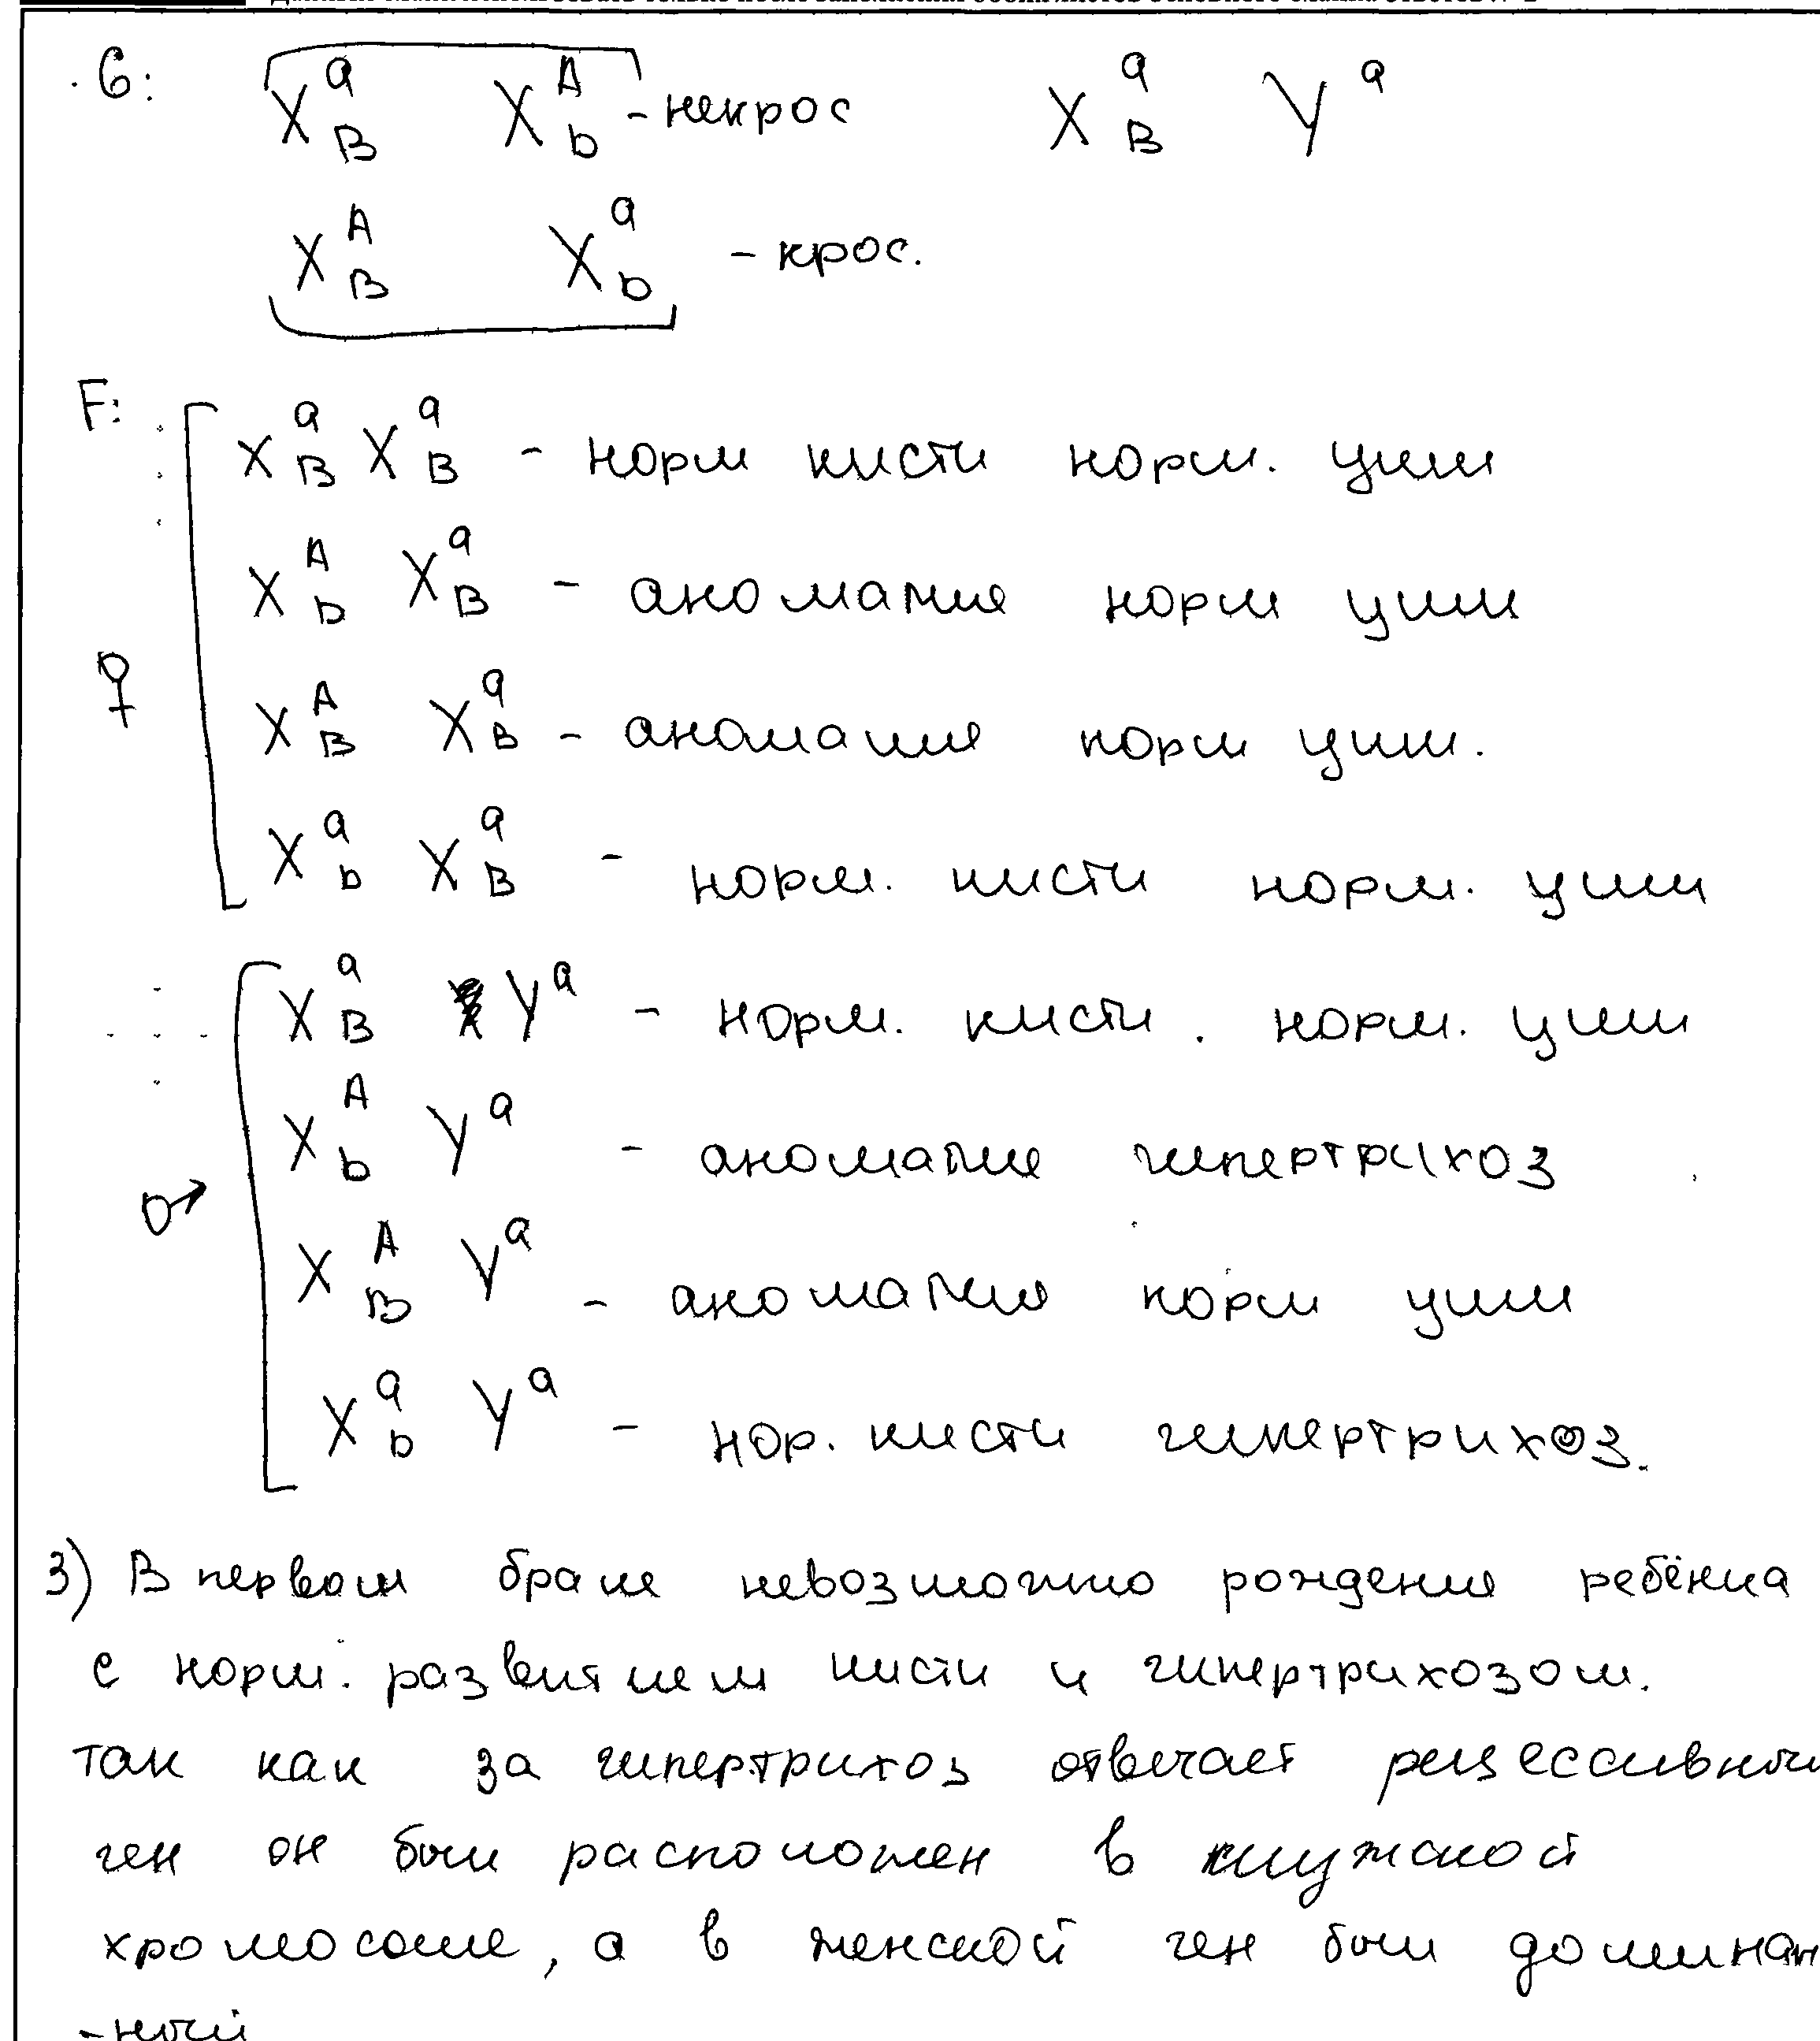 G: X^a_B X^A_b - некрос X^a_B Y^a
X^A_B X^a_b - крос.
F: X^a_B X^a_B - норм кисти норм. уши
X^A_b X^a_B - аномалия норм уши
♀ X^A_B X^a_B - аномалия норм уши.
X^a_b X^a_B - норм. кисти норм. уши
X^a_B Y^a - норм. кисти. норм. уши
X^A_b Y^a - аномалия гипертрихоз
♂ X^A_B Y^a - аномалия норм уши
X^a_b Y^a - нор. кисти гипертрихоз.
3) В первом браке невозможно рождения ребёнка
с норм. развитием кисти и гипертрихозом.
так как за гипертрихоз отвечает рецессивный
ген он был расположен в мужской
хромосоме, а в женской ген был доминан
-ный